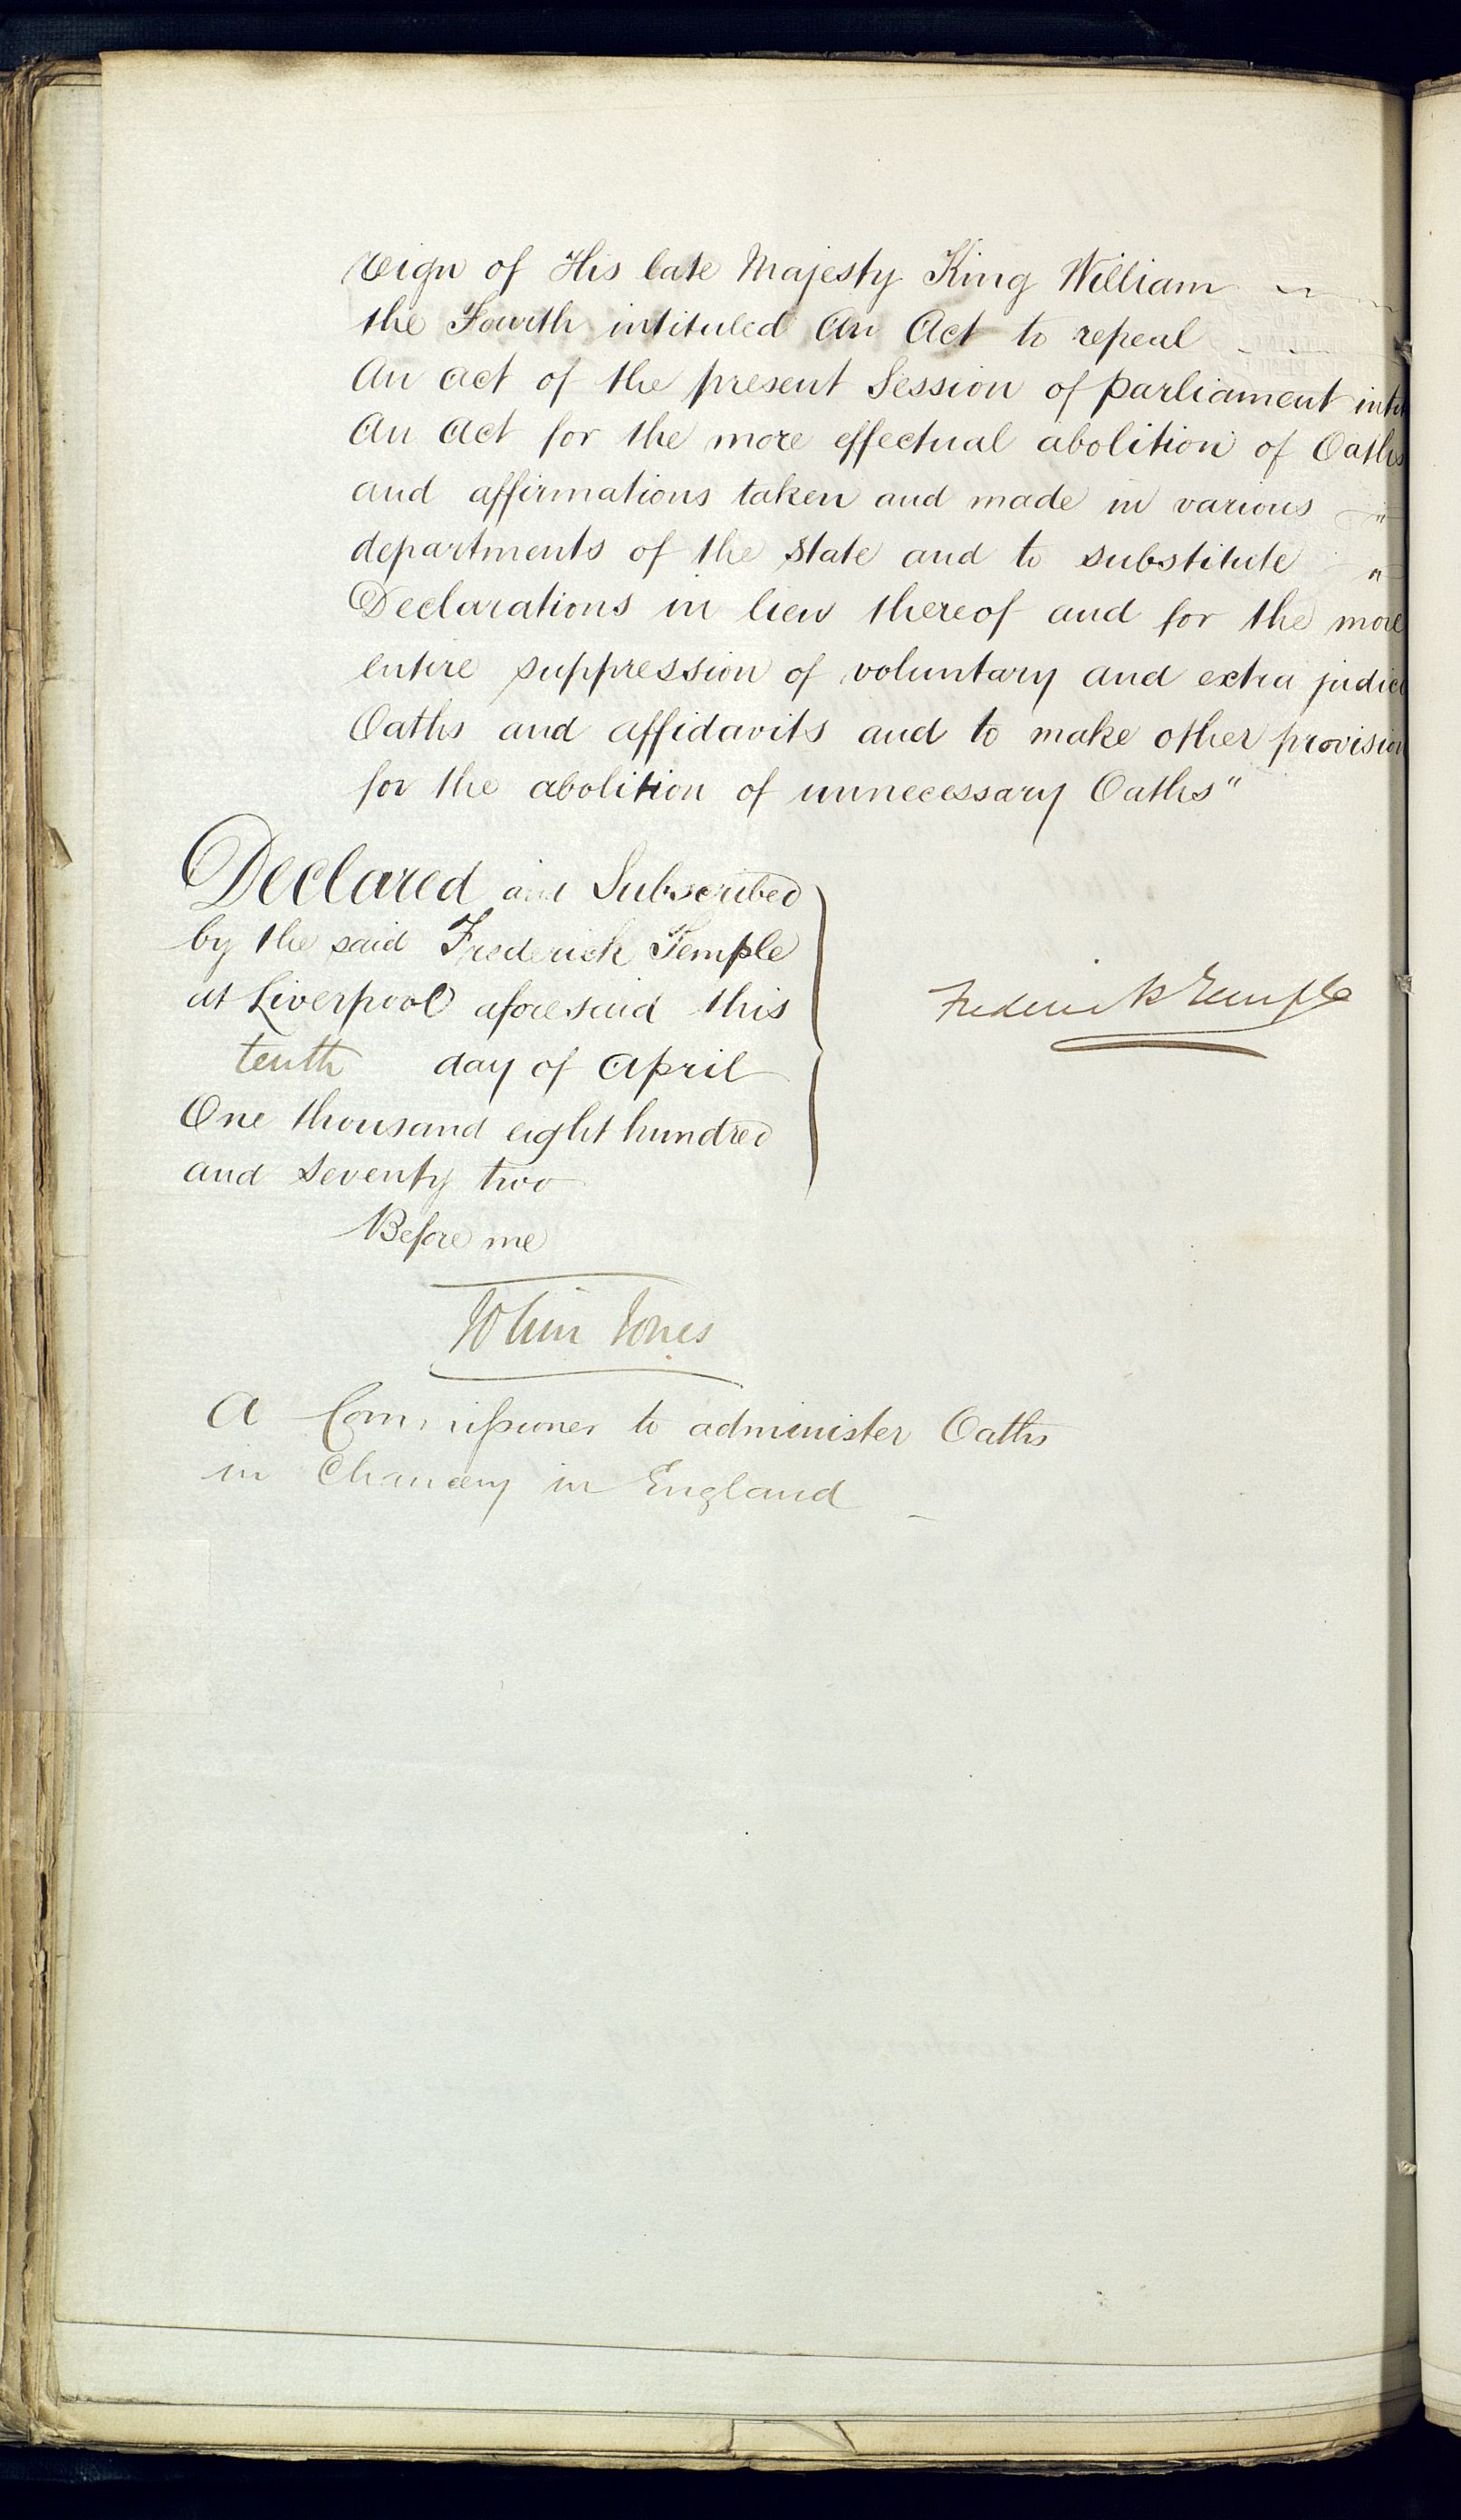 reign of His late Majesty King William
the Fourth intituled An Act to repeal
An act of the present Session of parliament intit
An Act for the more effectual abolition of Oaths
and affirmations taken and made in various "
departments of the State and to substitute "
Declarations in lieu thereof and for the more
entire suppression of voluntary and extra judici
Oaths and affidavits and to make other provision
for the abolition of unnecessary Oaths"
Declared and Subscribed
by the said Frederick Temple
at Liverpool aforesaid this
tenth day of April
One thousand eight hundred
and seventy two
Frederick Temple
Before me
John Jones
A Commissioner to administer Oaths
in Chancery in England